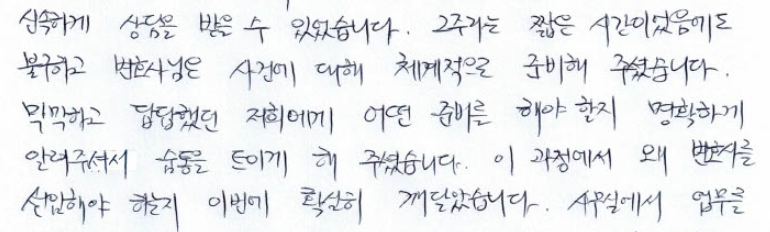 신속하게 상담을 받을 수 있었습니다. 2주라는 짧은 시간이었음에도
불구하고 변호사님은 사건에 대해 체계적으로 준비해 주셨습니다.
막막하고 답답했던 저희에게 어떤 준비를 해야 할지 명확하게
알려주셔서 숨통을 트이게 해 주셨습니다. 이 과정에서 왜 변호사를
선임해야 하는지 이번에 확실히 깨달았습니다. 사무실에서 업무를